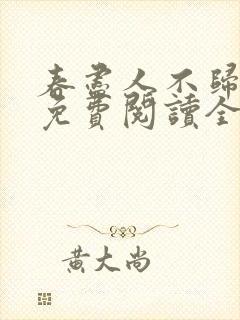 春盡人不歸
免費閱讀全
黃大尚